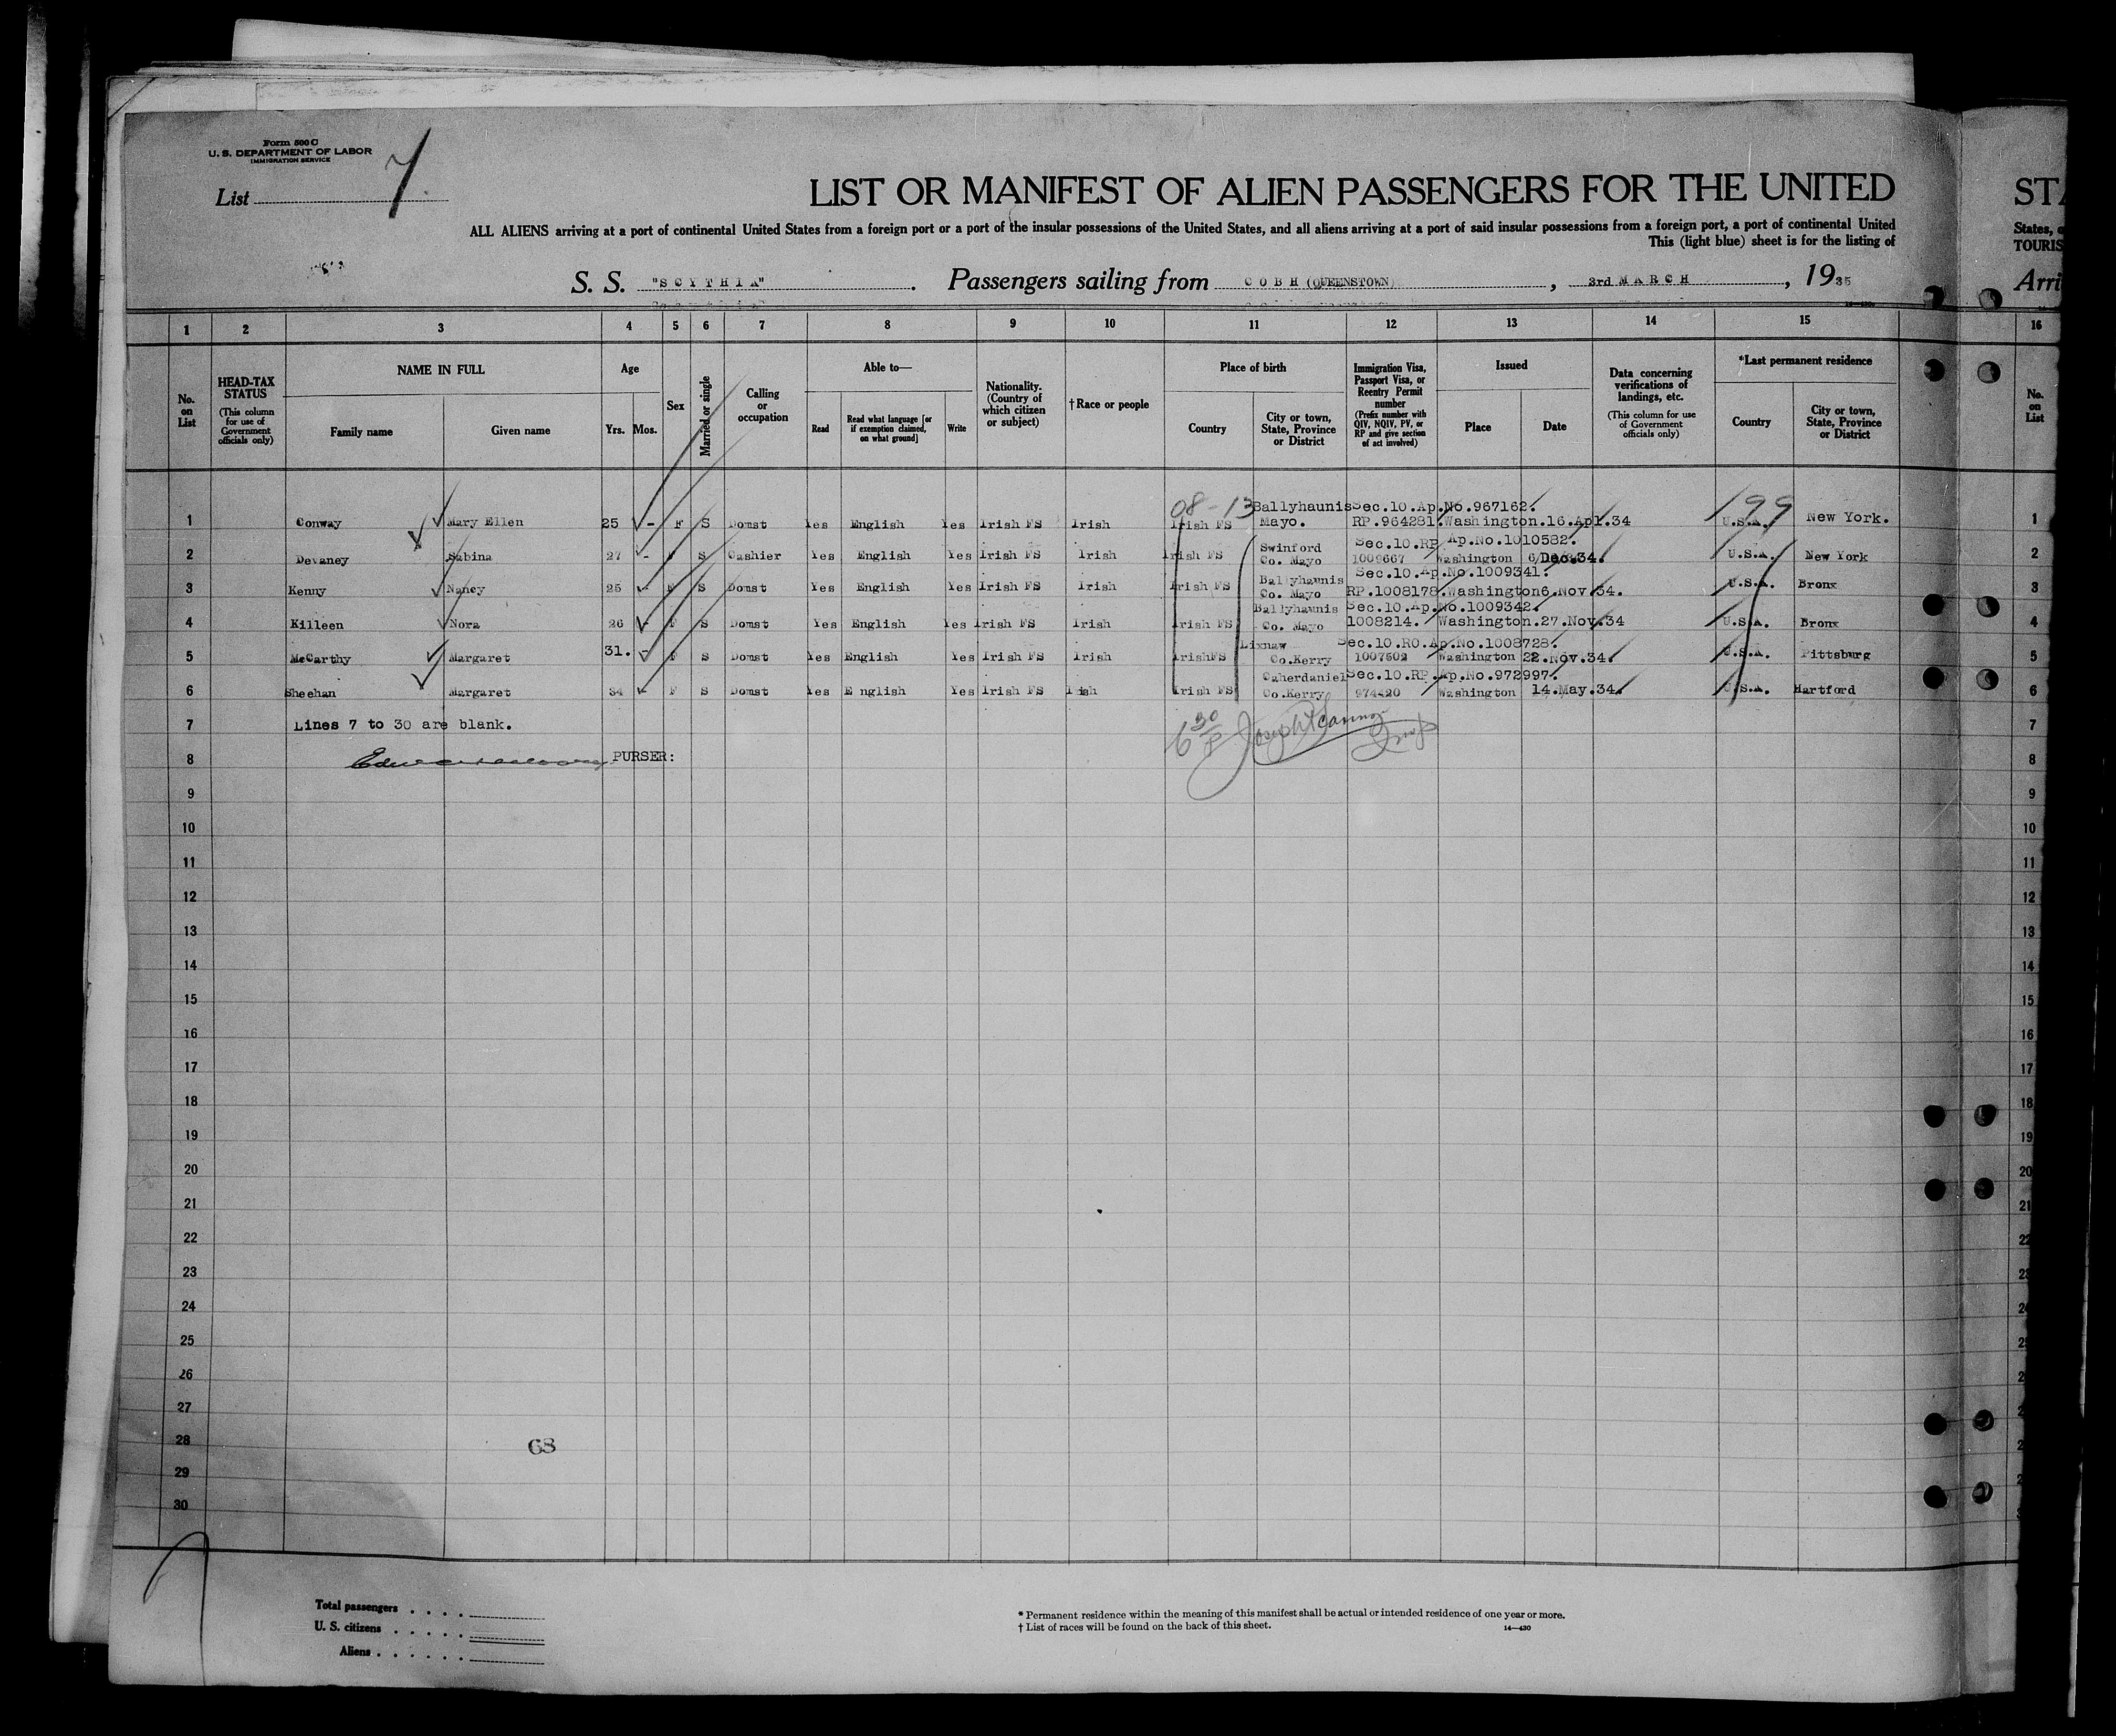 Form 500 C
U. S. DEPARTMENT OF LABOR
IMMIGRATION SERVICE
List 7
LIST OR MANIFEST OF ALIEN PASSENGERS FOR THE UNITED
ALL ALIENS arriving at a port of continental United States from a foreign port or a port of the insular possessions of the United States, and all aliens arriving at a port of said insular possessions from a foreign port, a port of continental United
This (light blue) sheet is for the listing of
S. S. "SCYTHIA". Passengers sailing from COBH (QUEENSTOWN), 3rd MARCH, 1935
STA
States, o
TOURIS
Arri
1 2 3 4 5 6 7 8 9 10 11 12 13 14 15 16
No. on List
HEAD-TAX STATUS (This column for use of Government officials only)
NAME IN FULL
Family name Given name
Age
Yrs. Mos.
Sex
Married or single
Calling or occupation
Able to—
Read Read what language [or if exemption claimed, on what ground] Write
Nationality. (Country of which citizen or subject)
†Race or people
Place of birth
Country City or town, State, Province or District
Immigration Visa, Passport Visa, or Reentry Permit number (Prefix number with QIV, NQIV, PV, or RP and give section of act involved)
Issued
Place Date
Data concerning verifications of landings, etc. (This column for use of Government officials only)
*Last permanent residence
Country City or town, State, Province or District
No. on List
08-13 Ballyhaunis Sec.10.Ap.No.967162. 199
1 Conway Mary Ellen 25 - F S Domst Yes English Yes Irish FS Irish Irish FS Mayo. RP.964281.Washington.16.Apl.34 U.S.A. New York. 1
Swinford Sec.10.RP Ap.No.1010582.
2 Devaney Sabina 27 - F S Cashier Yes English Yes Irish FS Irish Irish FS Co. Mayo 1009667 Washington 6/Dec.34. U.S.A. New York 2
Ballyhaunis Sec.10.Ap.No.1009341.
3 Kenny Nancy 25 - F S Domst Yes English Yes Irish FS Irish Irish FS Co. Mayo RP.1008178.Washington6.Nov.34. U.S.A. Bronx 3
Ballyhaunis Sec.10.Ap.No.1009342.
4 Killeen Nora 26 - F S Domst Yes English Yes Irish FS Irish Irish FS Co. Mayo 1008214. Washington.27.Nov.34 U.S.A. Bronx 4
Lixnaw Sec.10.RO.Ap.No.1008728.
5 McCarthy Margaret 31. - F S Domst Yes English Yes Irish FS Irish IrishFS Co.Kerry 1007502 Washington 22.Nov.34. U.S.A. Pittsburg 5
Caherdaniel Sec.10.RP.Ap.No.972997.
6 Sheehan Margaret 34 - F S Domst Yes English Yes Irish FS Irish Irish FS Co.Kerry 974420 Washington 14.May.34. U.S.A. Hartford 6
7 Lines 7 to 30 are blank. 7
8 PURSER: 8
9 9
10 10
11 11
12 12
13 13
14 14
15 15
16 16
17 17
18 18
19 19
20 20
21 21
22 22
23
24
25
26
27
28 68
29
30
Total passengers . . . .
U. S. citizens . . . . .
Aliens . . . . . .
* Permanent residence within the meaning of this manifest shall be actual or intended residence of one year or more.
† List of races will be found on the back of this sheet.
14—430